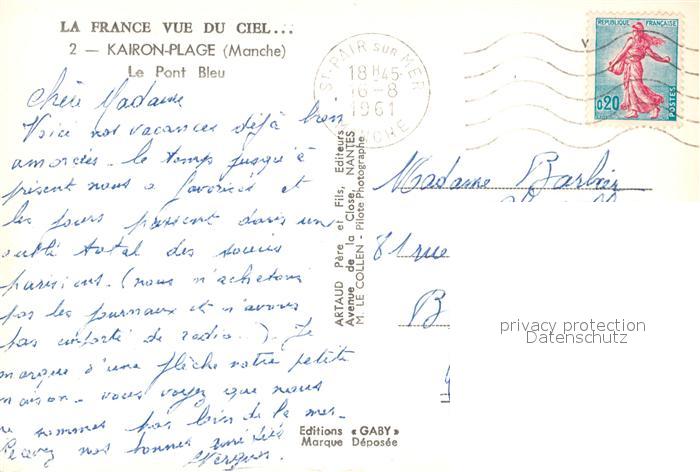 LA FRANCE VUE DU CIEL...
2 — KAIRON-PLAGE (Manche)
Le Pont Bleu
Chère Madame
Voici nos vacances déjà bien
amorcées. le temps jusqu'à
présent nous a favorisés et
les jours passent dans un
oubli total des soucis
parisiens. (nous n'achetons
pas les journaux et n'avons
pas emporté de radio...). Je
marque d'une flèche notre petite
maison. vous voyez que nous
ne sommes pas loin de la mer.
Recevez nos bonnes amitiés
ST-PAIR SUR MER
18 H 45
16-8
1961
MANCHE
REPUBLIQUE FRANÇAISE
0,20
POSTES
ARTAUD Père et Fils, Editeurs
Avenue de la Close, NANTES
M. LE COLLEN - Pilote Photographe
Madame Barbier
81 rue
B
privacy protection
Datenschutz
Editions « GABY »
Marque Déposée